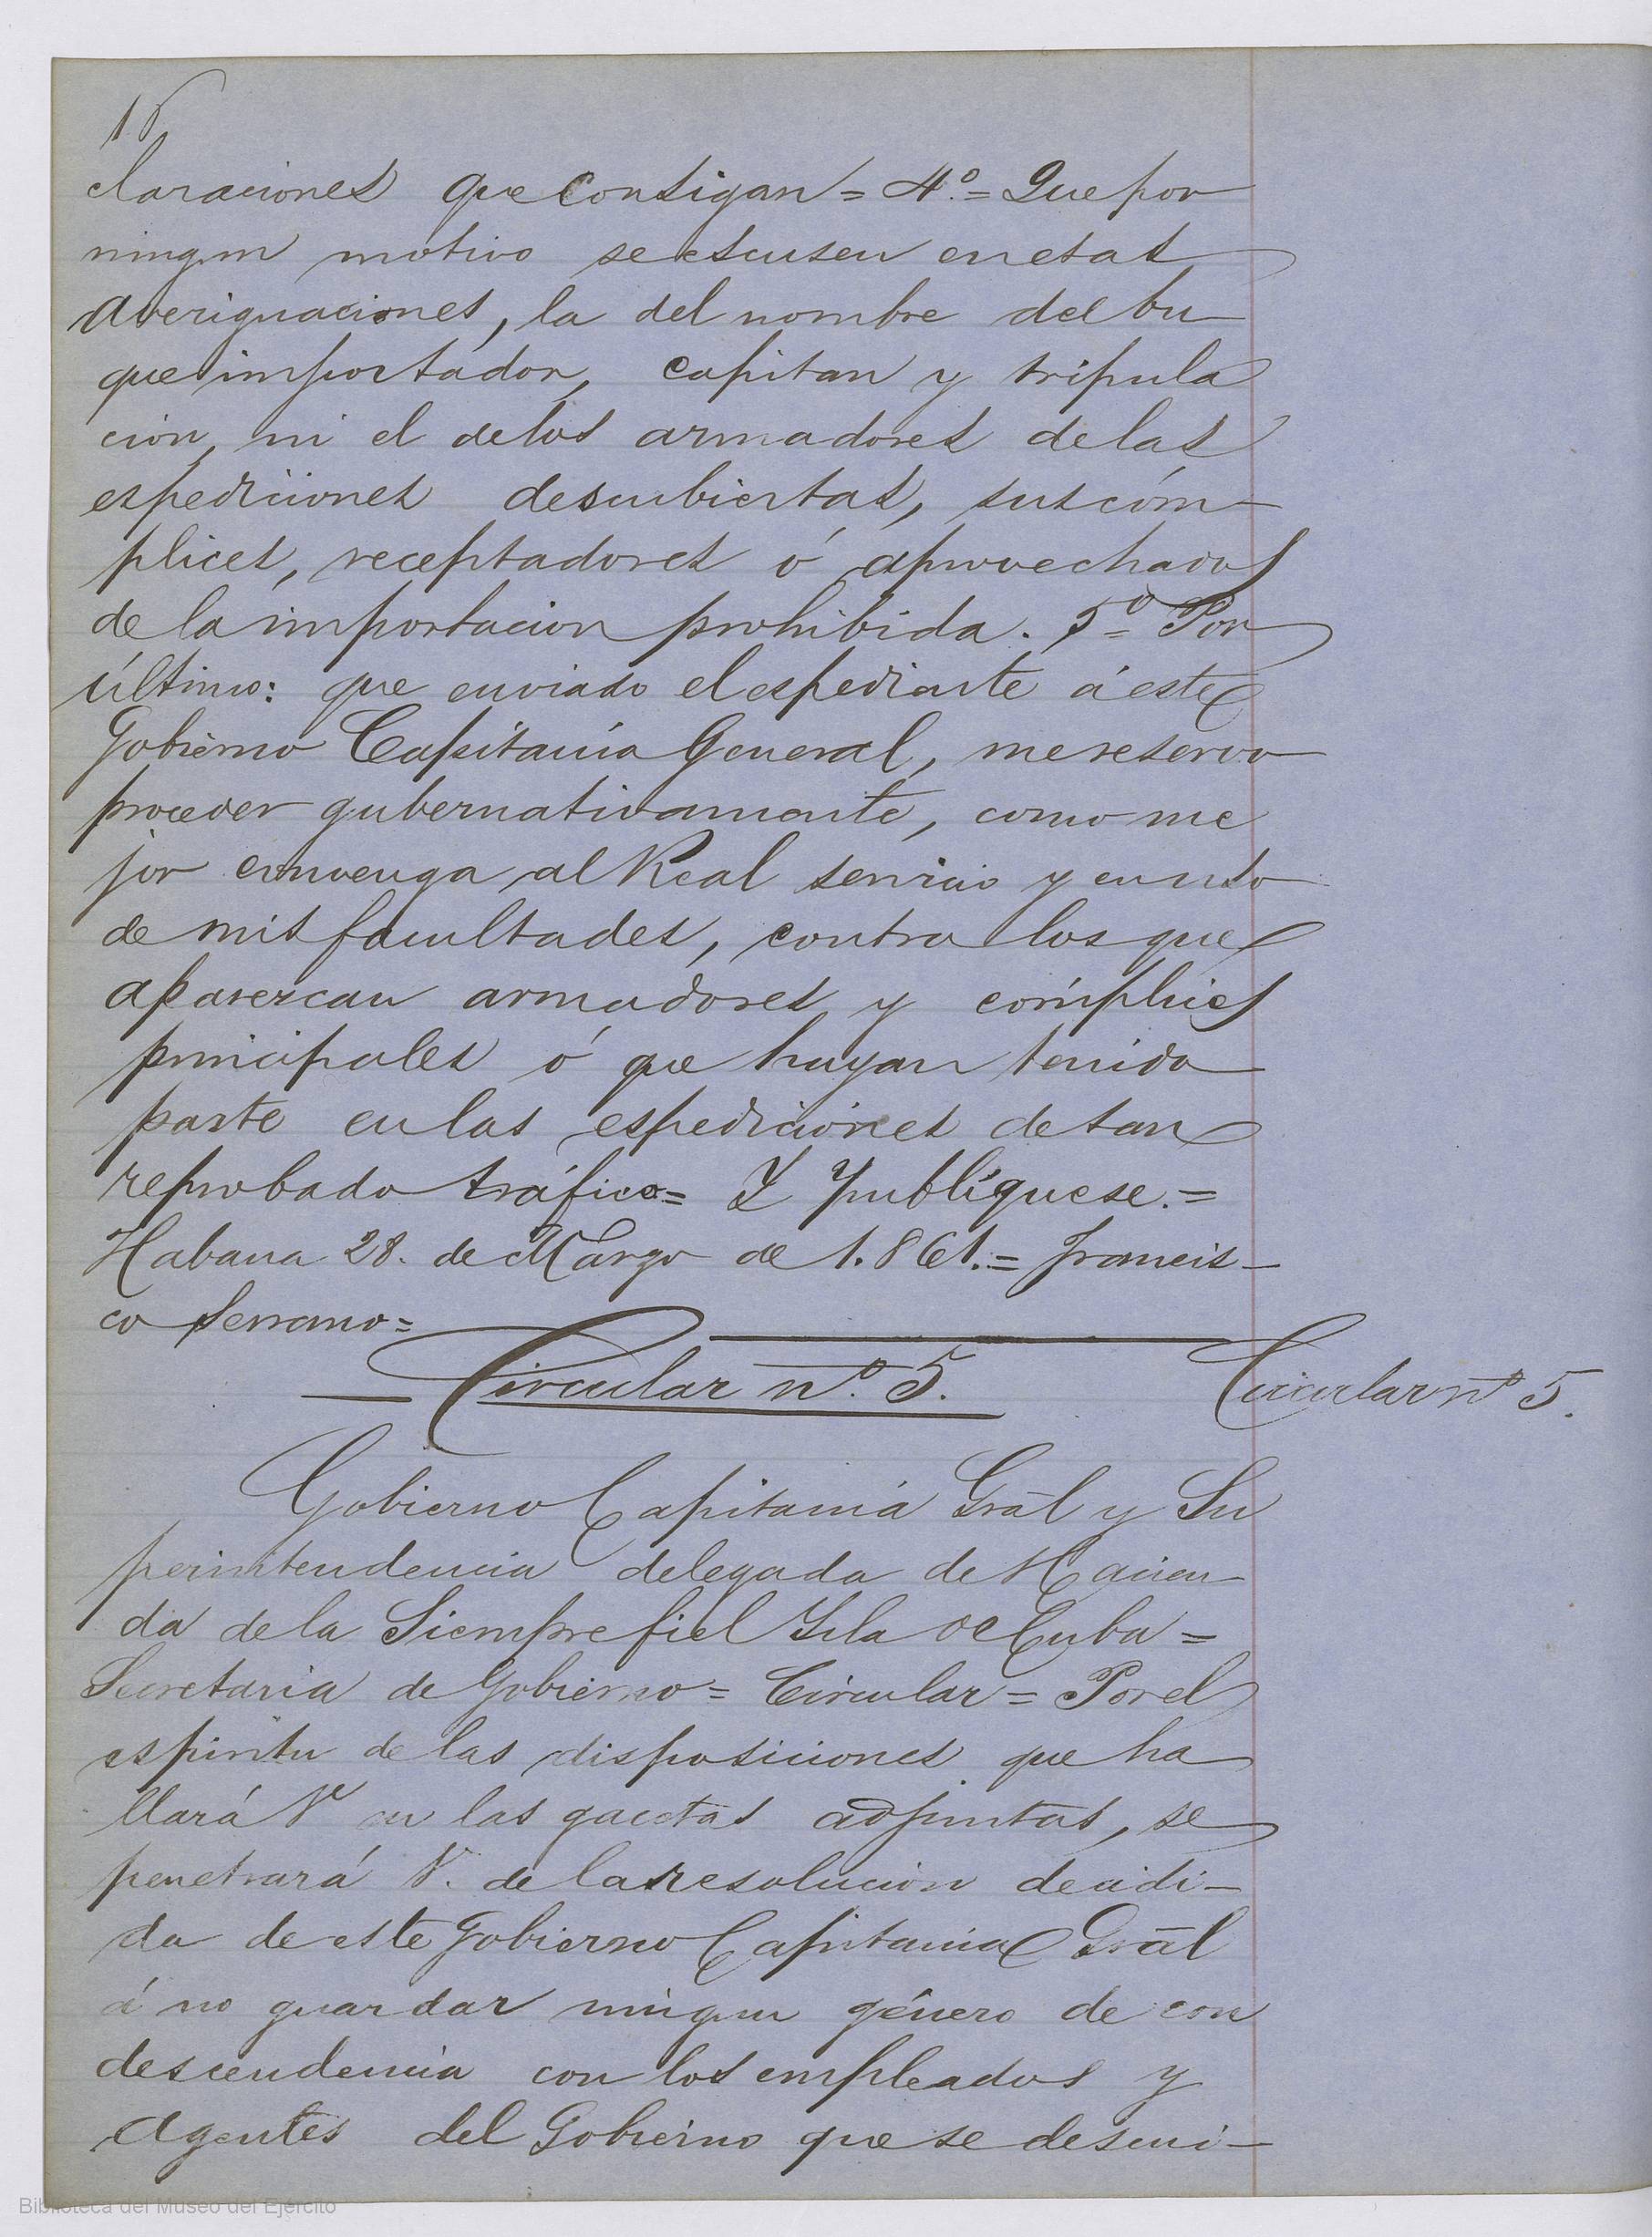 16
claraciones que consigan = 4.º = Que por
ningun motivo se escusen en estas
averiguaciones, la del nombre del bu
que importador, capitan y tripula
cion, ni el de los armadores de las
espediciones descubiertas, sus cóm-
plices, receptadores ó aprovechados
de la importacion prohibida. 5º = Por
último: que enviado el espediente á este
Gobierno Capitanía General, me reservo
proceder gubernativamente, como me
jor convenga al Real servicio y en uso
de mis facultades, contra los que
aparezcan armadores y cómplices
principales ó que hayan tenido
parte en las espediciones de tan
reprobado tráfico = Y publíquese. =
Habana 28. de Marzo de 1.861. = Francis-
co Serrano =
Circular nº. 5.
Circular nº 5.
Gobierno Capitanía Grāl y Su
perintendencia delegada de Hacien-
da de la Siempre fiel Isla de Cuba =
Secretaria de Gobierno = Circular = Por el
espíritu de las disposiciones que ha
llará V en las gacetas adjuntas, se
penetrará V. de la resolucion decidi-
da de este Gobierno Capitania Grāl
á no guardar ningun género de con
descendencia con los empleados y
Agentes del Gobierno que se descui-
Biblioteca del Museo del Ejército